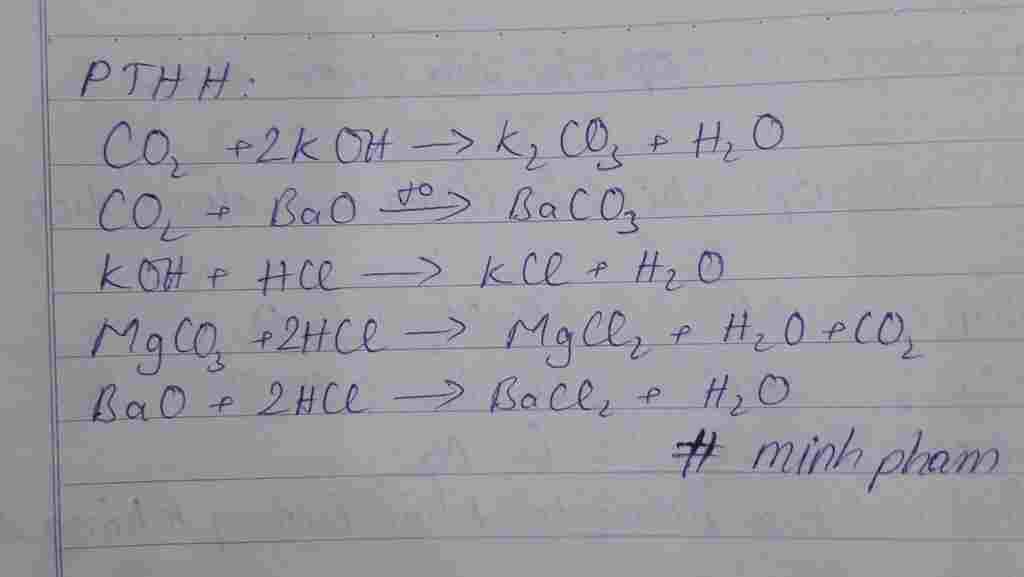 PTHH:
CO₂ + 2KOH → K₂CO₃ + H₂O
CO₂ + BaO →^{t°} BaCO₃
KOH + HCl → KCl + H₂O
MgCO₃ + 2HCl → MgCl₂ + H₂O + CO₂
BaO + 2HCl → BaCl₂ + H₂O
# minh pham